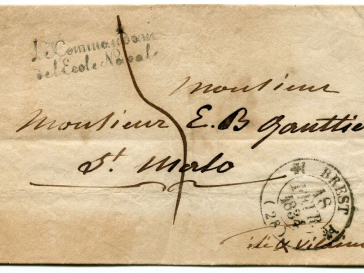 Le Commandant
de l'Ecole Navale
Monsieur
Monsieur E. B Gaultie
St Malo
BREST
18
1834
(28)